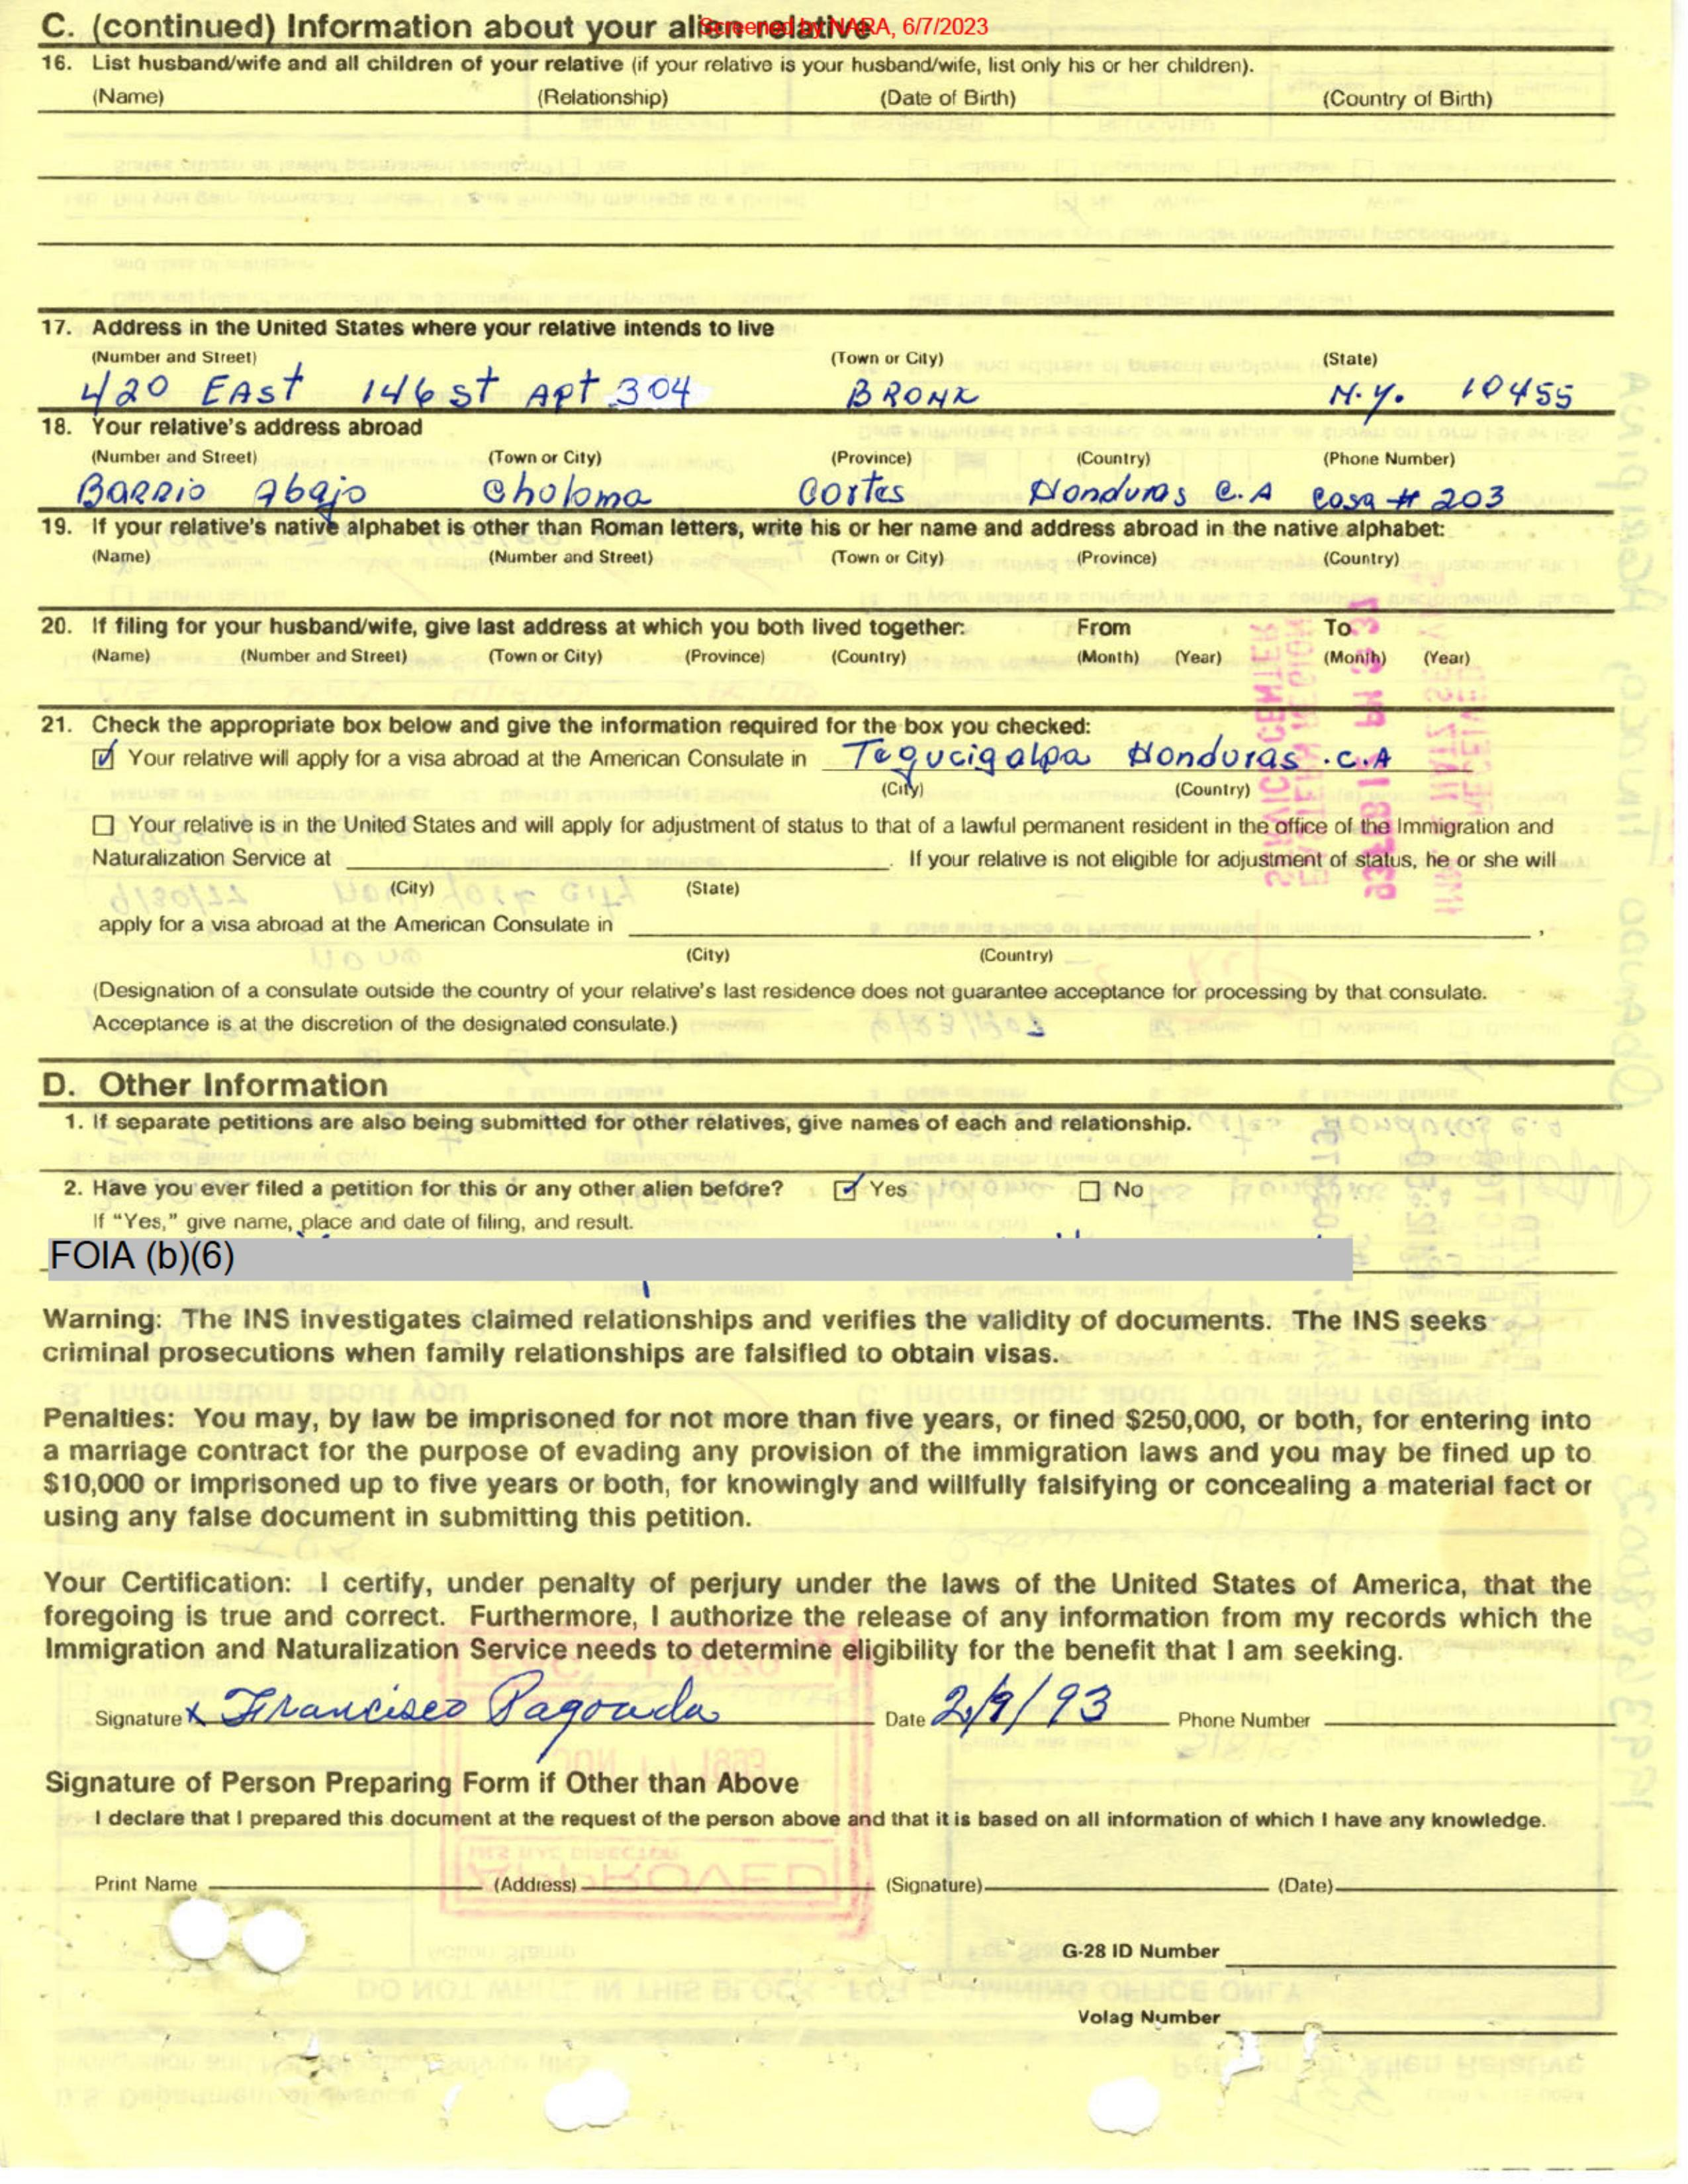 C. (continued) Information about your alien relative
Screened by NARA, 6/7/2023
16. List husband/wife and all children of your relative (if your relative is your husband/wife, list only his or her children).
(Name) (Relationship) (Date of Birth) (Country of Birth)
17. Address in the United States where your relative intends to live
(Number and Street) (Town or City) (State)
420 EAst 146 st Apt 304 BRONX N.Y. 10455
18. Your relative's address abroad
(Number and Street) (Town or City) (Province) (Country) (Phone Number)
BARRIO Abajo Choloma Cortes Honduras C.A Casa # 203
19. If your relative's native alphabet is other than Roman letters, write his or her name and address abroad in the native alphabet:
(Name) (Number and Street) (Town or City) (Province) (Country)
20. If filing for your husband/wife, give last address at which you both lived together: From To
(Name) (Number and Street) (Town or City) (Province) (Country) (Month) (Year) (Month) (Year)
21. Check the appropriate box below and give the information required for the box you checked:
Your relative will apply for a visa abroad at the American Consulate in Tegucigalpa Honduras .C.A
(City) (Country)
Your relative is in the United States and will apply for adjustment of status to that of a lawful permanent resident in the office of the Immigration and
Naturalization Service at . If your relative is not eligible for adjustment of status, he or she will
(City) (State)
apply for a visa abroad at the American Consulate in ,
(City) (Country)
(Designation of a consulate outside the country of your relative's last residence does not guarantee acceptance for processing by that consulate.
Acceptance is at the discretion of the designated consulate.)
D. Other Information
1. If separate petitions are also being submitted for other relatives, give names of each and relationship.
2. Have you ever filed a petition for this or any other alien before? Yes No
If "Yes," give name, place and date of filing, and result.
FOIA (b)(6)
Warning: The INS investigates claimed relationships and verifies the validity of documents. The INS seeks
criminal prosecutions when family relationships are falsified to obtain visas.
Penalties: You may, by law be imprisoned for not more than five years, or fined $250,000, or both, for entering into
a marriage contract for the purpose of evading any provision of the immigration laws and you may be fined up to
$10,000 or imprisoned up to five years or both, for knowingly and willfully falsifying or concealing a material fact or
using any false document in submitting this petition.
Your Certification: I certify, under penalty of perjury under the laws of the United States of America, that the
foregoing is true and correct. Furthermore, I authorize the release of any information from my records which the
Immigration and Naturalization Service needs to determine eligibility for the benefit that I am seeking.
Signature x Francisco Pagouda Date 2/9/93 Phone Number
Signature of Person Preparing Form if Other than Above
I declare that I prepared this document at the request of the person above and that it is based on all information of which I have any knowledge.
Print Name (Address) (Signature) (Date)
G-28 ID Number
Volag Number